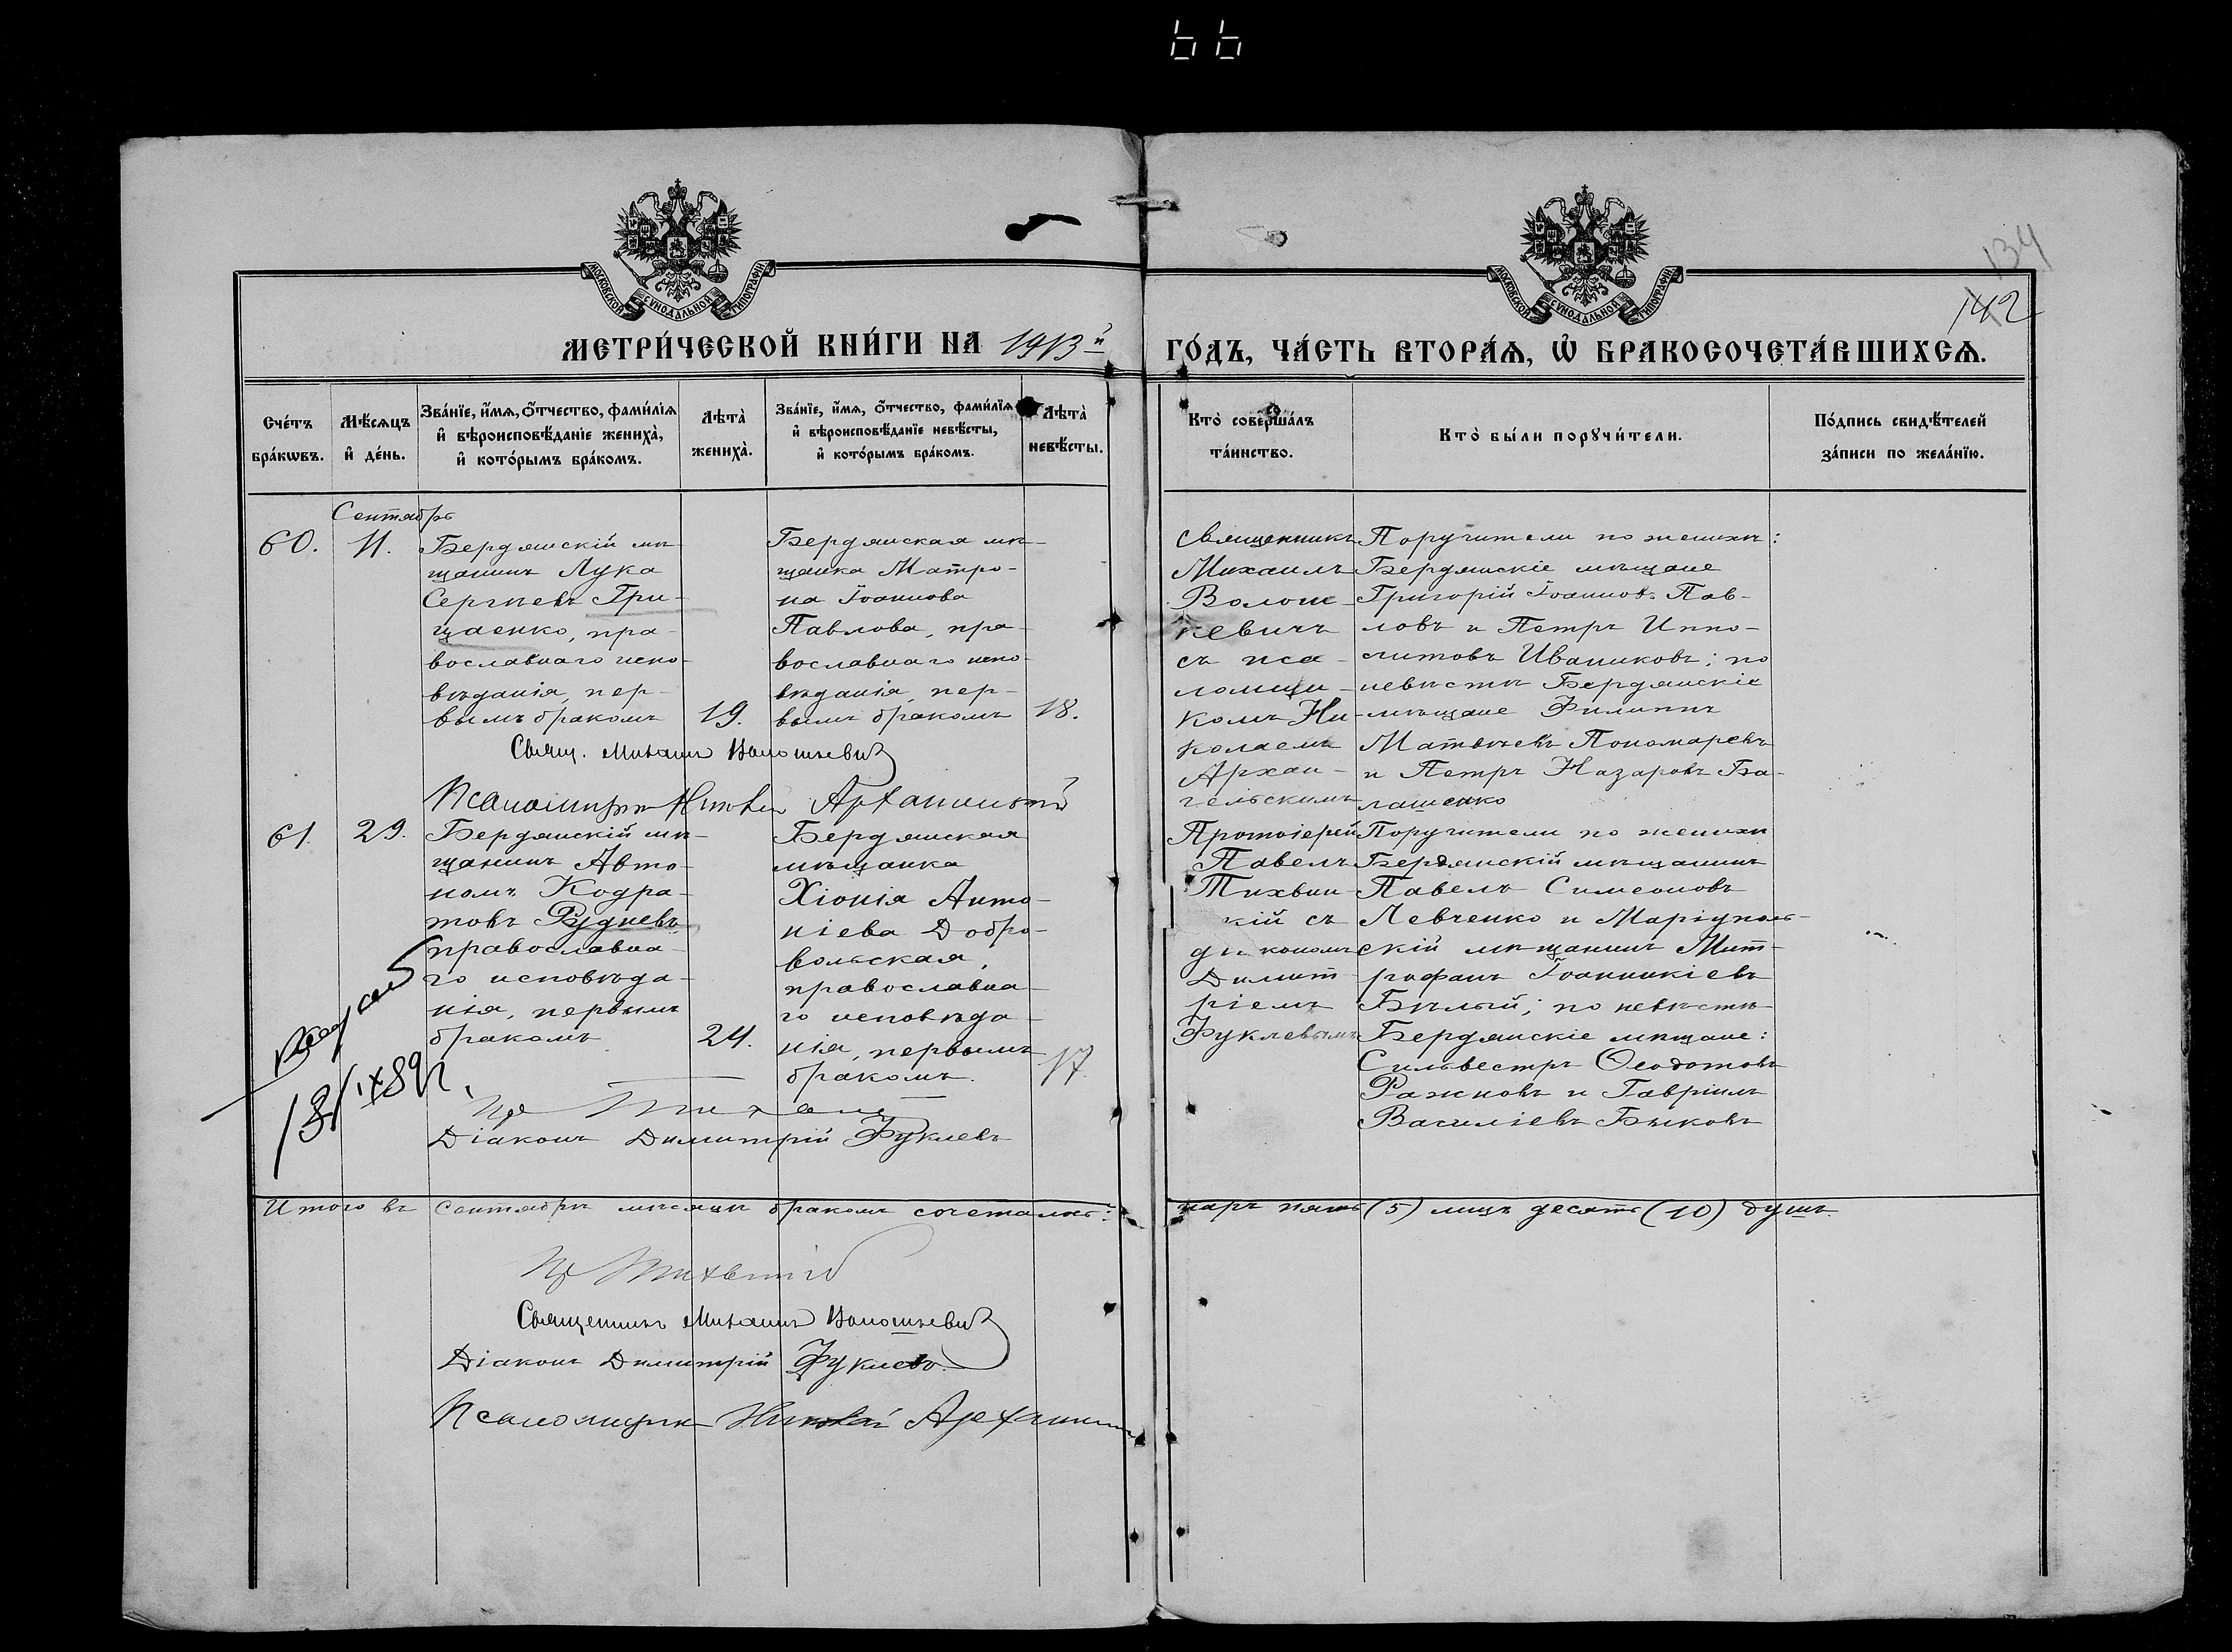 66
МОСКОВСКОЙ СѴНОДАЛЬНОЙ ТИПОГРАФІИ
МОСКОВСКОЙ СѴНОДАЛЬНОЙ ТИПОГРАФІИ
134
142
МЕТРИ́ЧЕСКОЙ КНИ́ГИ НА 1913 й
ГО́ДЪ, ЧА́СТЬ ВТОРА́Ѧ, Ѿ БРАКОСОЧЕТА́ВШИХСѦ.
Сче́тъ
бра́кѡвъ.
Мѣ́сѧцъ
и҆ де́нь.
Зва́нїе, и҆́мѧ, ѻ҆́тчество, фами́лїѧ
и҆ вѣроисповѣ́данїе жениха̀,
и҆ кото́рымъ бра́комъ.
Лѣта̀
жениха̀.
Зва́нїе, и҆́мѧ, ѻ҆́тчество, фами́лїѧ
и҆ вѣроисповѣ́данїе невѣ́сты,
и҆ кото́рымъ бра́комъ.
Лѣта̀
невѣ́сты.
Кто̀ соверша́лъ
та́инство.
Кто̀ бы́ли порꙋчи́тели.
По́дпись свидѣ́телей
за́писи по жела́нїю.
Сентябрь
60.
11.
Бердянскій мѣ-
щанинъ Лука
Сергѣевъ Гри-
щаенко, пра-
вославнаго испо-
вѣданія, пер-
вымъ бракомъ
19.
Бердянская мѣ-
щанка Матро-
на Іоаннова
Павлова, пра-
вославнаго испо-
вѣданія, пер-
вымъ бракомъ
18.
Священникъ
Михаилъ
Волош-
кевичъ
съ пса-
ломщи-
комъ Ни-
колаемъ
Архан-
гельскимъ
Поручители по женихѣ:
Бердянскіе мѣщане
Григорій Іоанновъ Пав-
ловъ и Петръ Иппо-
литовъ Иванниковъ; по
невѣстѣ Бердянскіе
мѣщане Филиппъ
Матвѣевъ Пономаревъ
и Петръ Назаровъ Ба-
лашенко
Свящ. Михаилъ Волошкевичъ
Псаломщикъ Николай Архангельскій
61.
29.
Бердянскій мѣ-
щанинъ Авто-
номъ Кодра-
товъ Рудневъ
православна-
го исповѣда-
нія, первымъ
бракомъ
24.
Бердянская
мѣщанка
Хіонія Анто-
ніева Добро-
вольская,
православна-
го исповѣда-
нія, первымъ
бракомъ.
17.
Протоіерей
Павелъ
Тихвин-
кій съ
діакономъ
Димит-
ріемъ
Фуклевымъ
Поручители по женихѣ
Бердянскій мѣщанинъ
Павелъ Симеоновъ
Левченко и Маріуполь-
скій мѣщанинъ Мит-
рофанъ Іоанникіевъ
Бѣлый; по невѣстѣ
Бердянскіе мѣщане:
Сильвестръ Ѳеодотовъ
Ражновъ и Гавріилъ
Василіевъ Быковъ
Діаконъ Димитрій Фуклевъ
Итого въ Сентябрѣ мѣсяцѣ бракомъ сочетались:
паръ пять (5) лицъ десять (10) душъ.
Пр Тихвинскій
Священникъ Михаилъ Волошкевичъ
Діаконъ Димитрій Фуклевъ.
Псаломщикъ Николай Архангельскій